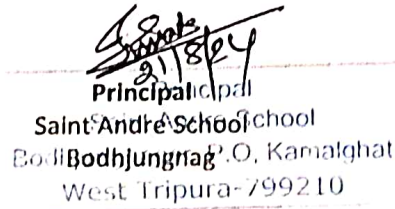 21/8/24
Principal
Saint Andre School
Bodhjungnag P.O, Kamalghat
West Tripura-799210